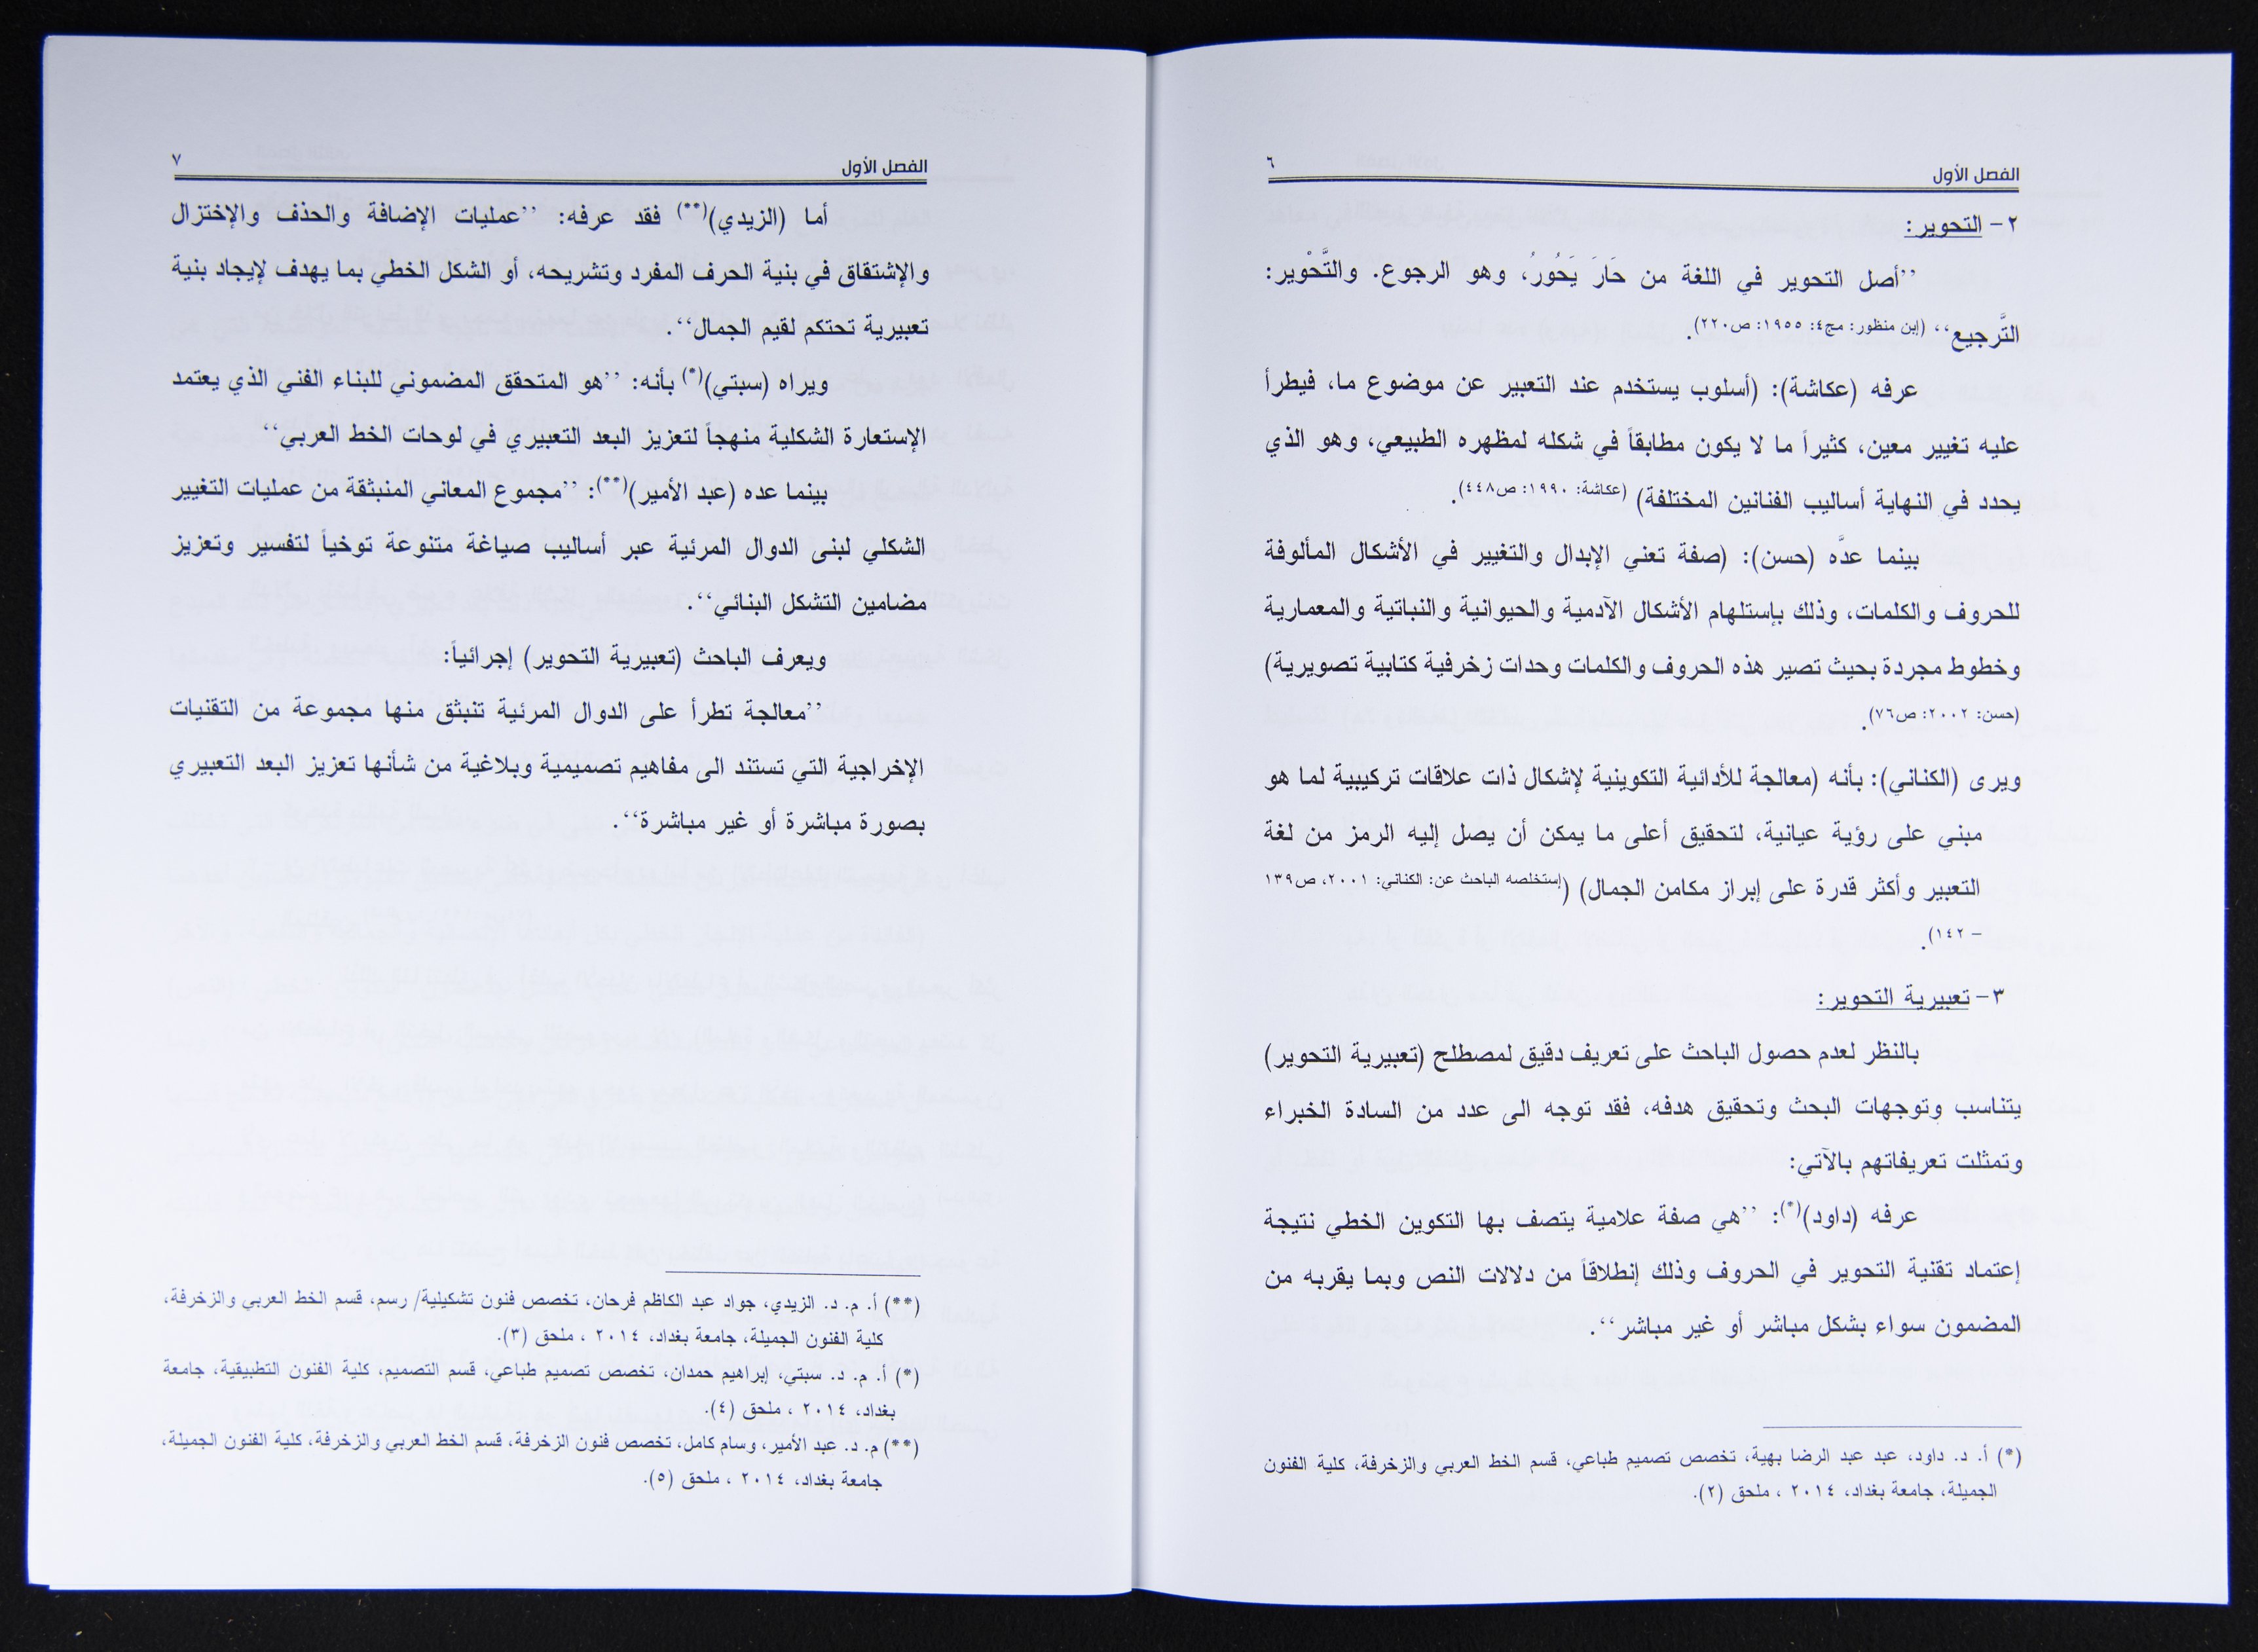 الفصل الأول ٦
٢- التحوير:
’’أصل التحوير في اللغة من حَارَ يَحُورُ، وهو الرجوع. والتَّحْوير:
التَّرجيع‘‘ (إبن منظور: مج٤: ١٩٥٥: ص٢٢٠).
عرفه (عكاشة): (أسلوب يستخدم عند التعبير عن موضوع ما، فيطرأ
عليه تغيير معين، كثيراً ما لا يكون مطابقاً في شكله لمظهره الطبيعي، وهو الذي
يحدد في النهاية أساليب الفنانين المختلفة) (عكاشة: ١٩٩٠: ص٤٤٨).
بينما عدَّه (حسن): (صفة تعني الإبدال والتغيير في الأشكال المألوفة
للحروف والكلمات، وذلك بإستلهام الأشكال الآدمية والحيوانية والنباتية والمعمارية
وخطوط مجردة بحيث تصير هذه الحروف والكلمات وحدات زخرفية كتابية تصويرية)
(حسن: ٢٠٠٢: ص٧٦).
ويرى (الكناني): بأنه (معالجة للأدائية التكوينية لإشكال ذات علاقات تركيبية لما هو
مبني على رؤية عيانية، لتحقيق أعلى ما يمكن أن يصل إليه الرمز من لغة
التعبير وأكثر قدرة على إبراز مكامن الجمال) (إستخلصه الباحث عن: الكناني: ٢٠٠١، ص١٣٩
– ١٤٢).
٣- تعبيرية التحوير:
بالنظر لعدم حصول الباحث على تعريف دقيق لمصطلح (تعبيرية التحوير)
يتناسب وتوجهات البحث وتحقيق هدفه، فقد توجه الى عدد من السادة الخبراء
وتمثلت تعريفاتهم بالآتي:
عرفه (داود)(*): ’’هي صفة علامية يتصف بها التكوين الخطي نتيجة
إعتماد تقنية التحوير في الحروف وذلك إنطلاقاً من دلالات النص وبما يقربه من
المضمون سواء بشكل مباشر أو غير مباشر‘‘.
(*) أ. د. داود، عبد عبد الرضا بهية، تخصص تصميم طباعي، قسم الخط العربي والزخرفة، كلية الفنون
الجميلة، جامعة بغداد، ٢٠١٤ ، ملحق (٢).
الفصل الأول ٧
أما (الزيدي)(**) فقد عرفه: ’’عمليات الإضافة والحذف والإختزال
والإشتقاق في بنية الحرف المفرد وتشريحه، أو الشكل الخطي بما يهدف لإيجاد بنية
تعبيرية تحتكم لقيم الجمال‘‘.
ويراه (سبتي)(*) بأنه: ’’هو المتحقق المضموني للبناء الفني الذي يعتمد
الإستعارة الشكلية منهجاً لتعزيز البعد التعبيري في لوحات الخط العربي‘‘
بينما عده (عبد الأمير)(**): ’’مجموع المعاني المنبثقة من عمليات التغيير
الشكلي لبنى الدوال المرئية عبر أساليب صياغة متنوعة توخياً لتفسير وتعزيز
مضامين التشكل البنائي‘‘.
ويعرف الباحث (تعبيرية التحوير) إجرائياً:
’’معالجة تطرأ على الدوال المرئية تنبثق منها مجموعة من التقنيات
الإخراجية التي تستند الى مفاهيم تصميمية وبلاغية من شأنها تعزيز البعد التعبيري
بصورة مباشرة أو غير مباشرة‘‘.
(**) أ. م. د. الزيدي، جواد عبد الكاظم فرحان، تخصص فنون تشكيلية/ رسم، قسم الخط العربي والزخرفة،
كلية الفنون الجميلة، جامعة بغداد، ٢٠١٤ ، ملحق (٣).
(*) أ. م. د. سبتي، إبراهيم حمدان، تخصص تصميم طباعي، قسم التصميم، كلية الفنون التطبيقية، جامعة
بغداد، ٢٠١٤ ، ملحق (٤).
(**) م. د. عبد الأمير، وسام كامل، تخصص فنون الزخرفة، قسم الخط العربي والزخرفة، كلية الفنون الجميلة،
جامعة بغداد، ٢٠١٤ ، ملحق (٥).